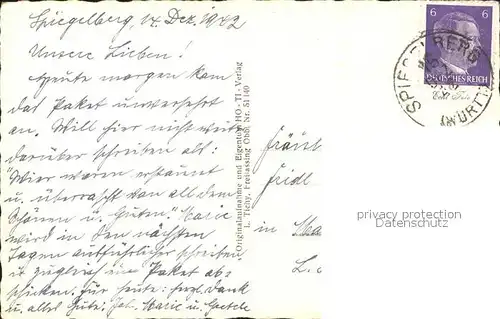 Spiegelberg, 14. Dez. 1942
Unsere Lieben!
Heute morgen kam
das Paket unversehrt
an. Will hier nicht weiter
darüber schreiben als:
"Wier waren erstaunt
u. überrascht von all dem
Schönen u. Guten." Marie
wird in den nächsten
Tagen ausführlicher schreiben
u. zugleich ein Paket ab-
schicken. Für heute: herzl. Dank
u. alles Gute: Joh. Marie u. Gretele
Originalaufnahme und Eigentum HO-TI-Verlag
L. Tichy, Freilassing Obb. Nr. 51140
6 6
DEUTSCHES REICH
SPIEGELBERG
(WÜRTT
Fräul
Fridl
in
L.
privacy protection
Datenschutz